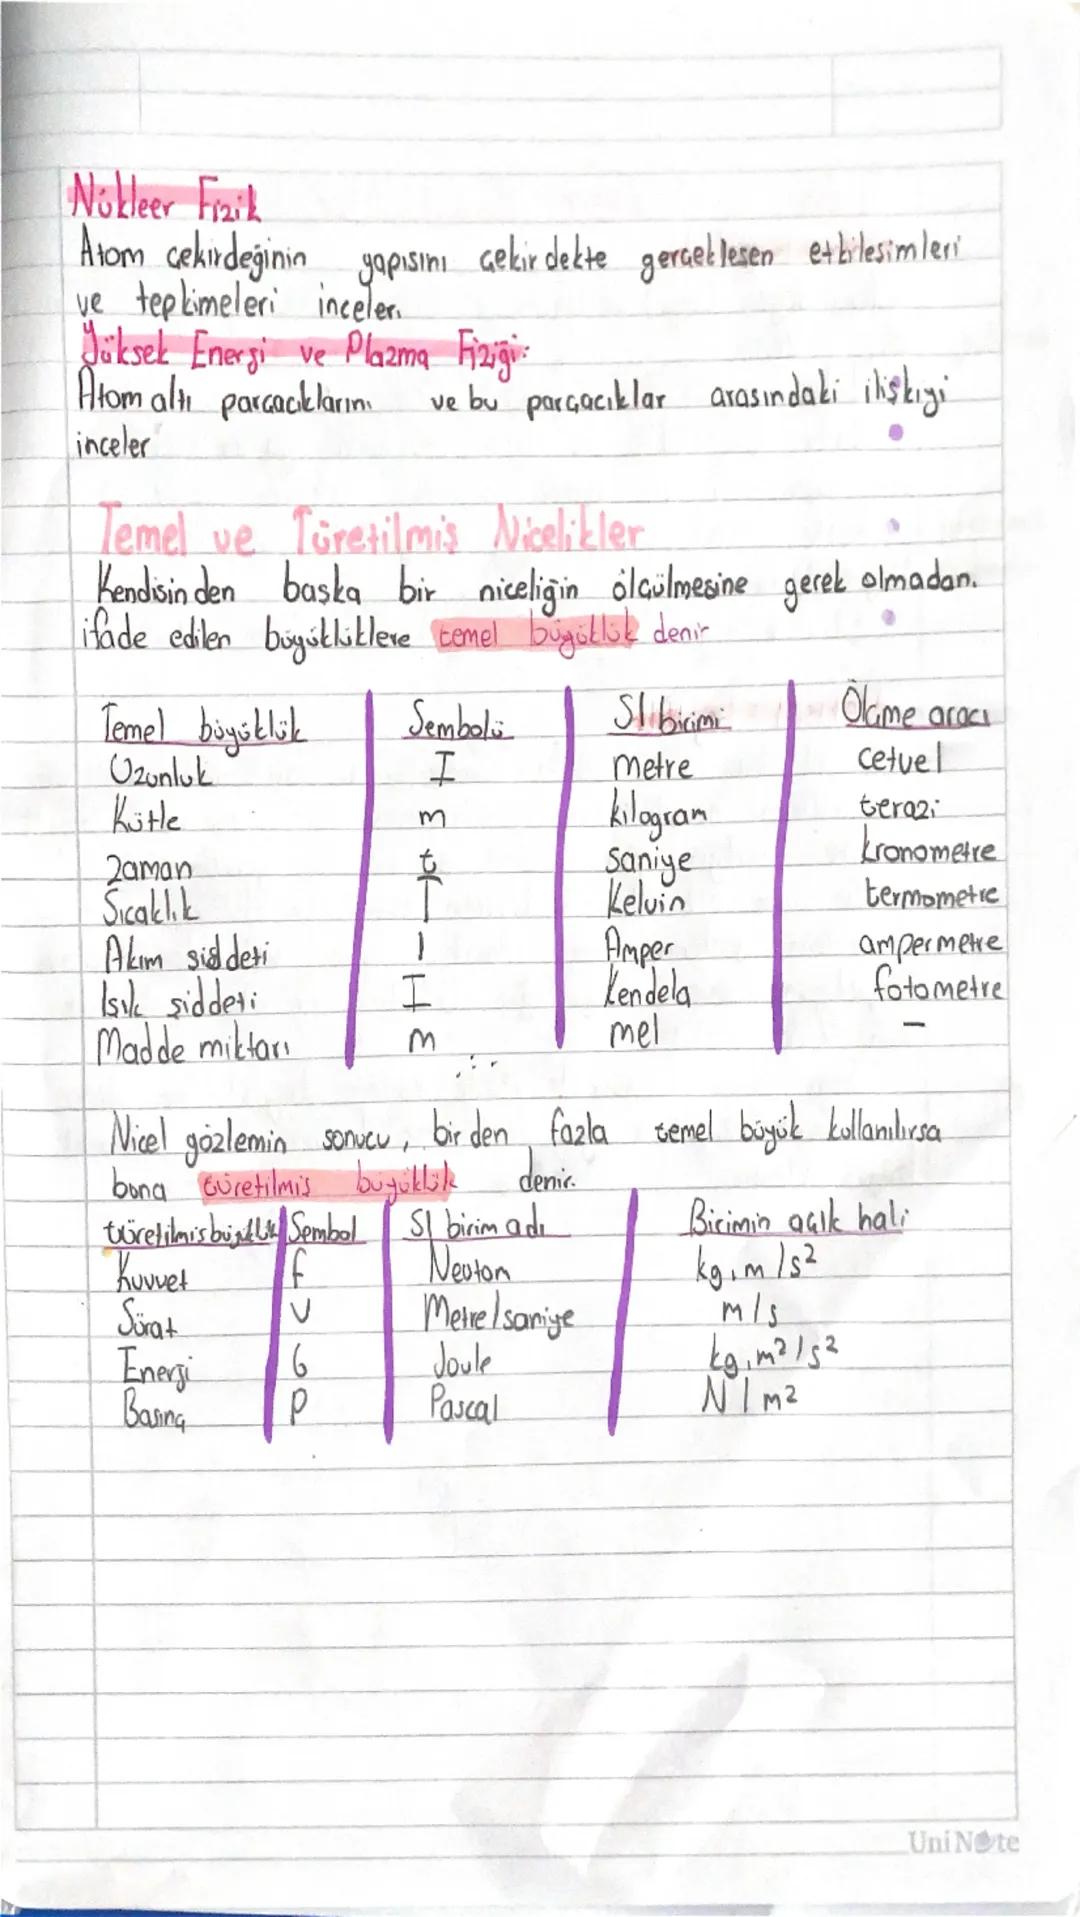 Nükleer Fizik
Atom çekirdeğinin yapısını çekirdekte gerçeklesen etkilesimleri
ve tepkimeleri inceler.
Yüksek Enerji ve Plazma Fiziği:
Atom altı parçacıklarını ve bu parçacıklar arasındaki ilişkiyi
inceler
Temel ve Türetilmiş Nicelikler
Kendisinden başka bir niceliğin ölçülmesine gerek olmadan.
ifade edilen büyüklüklere temel büyüklük denir
Temel büyüklük Sembolü SI birimi Ölçme aracı
Uzunluk I metre cetvel
Kütle m kilogram terazi
Zaman t saniye kronometre
Sıcaklık T Kelvin termometre
Akım şiddeti I Amper ampermetre
Işık şiddeti I Kendela fotometre
Madde miktarı m mel -
Nicel gözlemin sonucu, birden fazla temel büyük kullanılırsa
buna türetilmiş büyüklük denir.
türetilmiş büyüklük Sembol SI birim adı Birimin açık hali
Kuvvet f Newton kg.m/s²
Sürat v Metre/saniye m/s
Enerji G Joule kg.m²/s²
Basınç P Pascal N/m²
UniNote